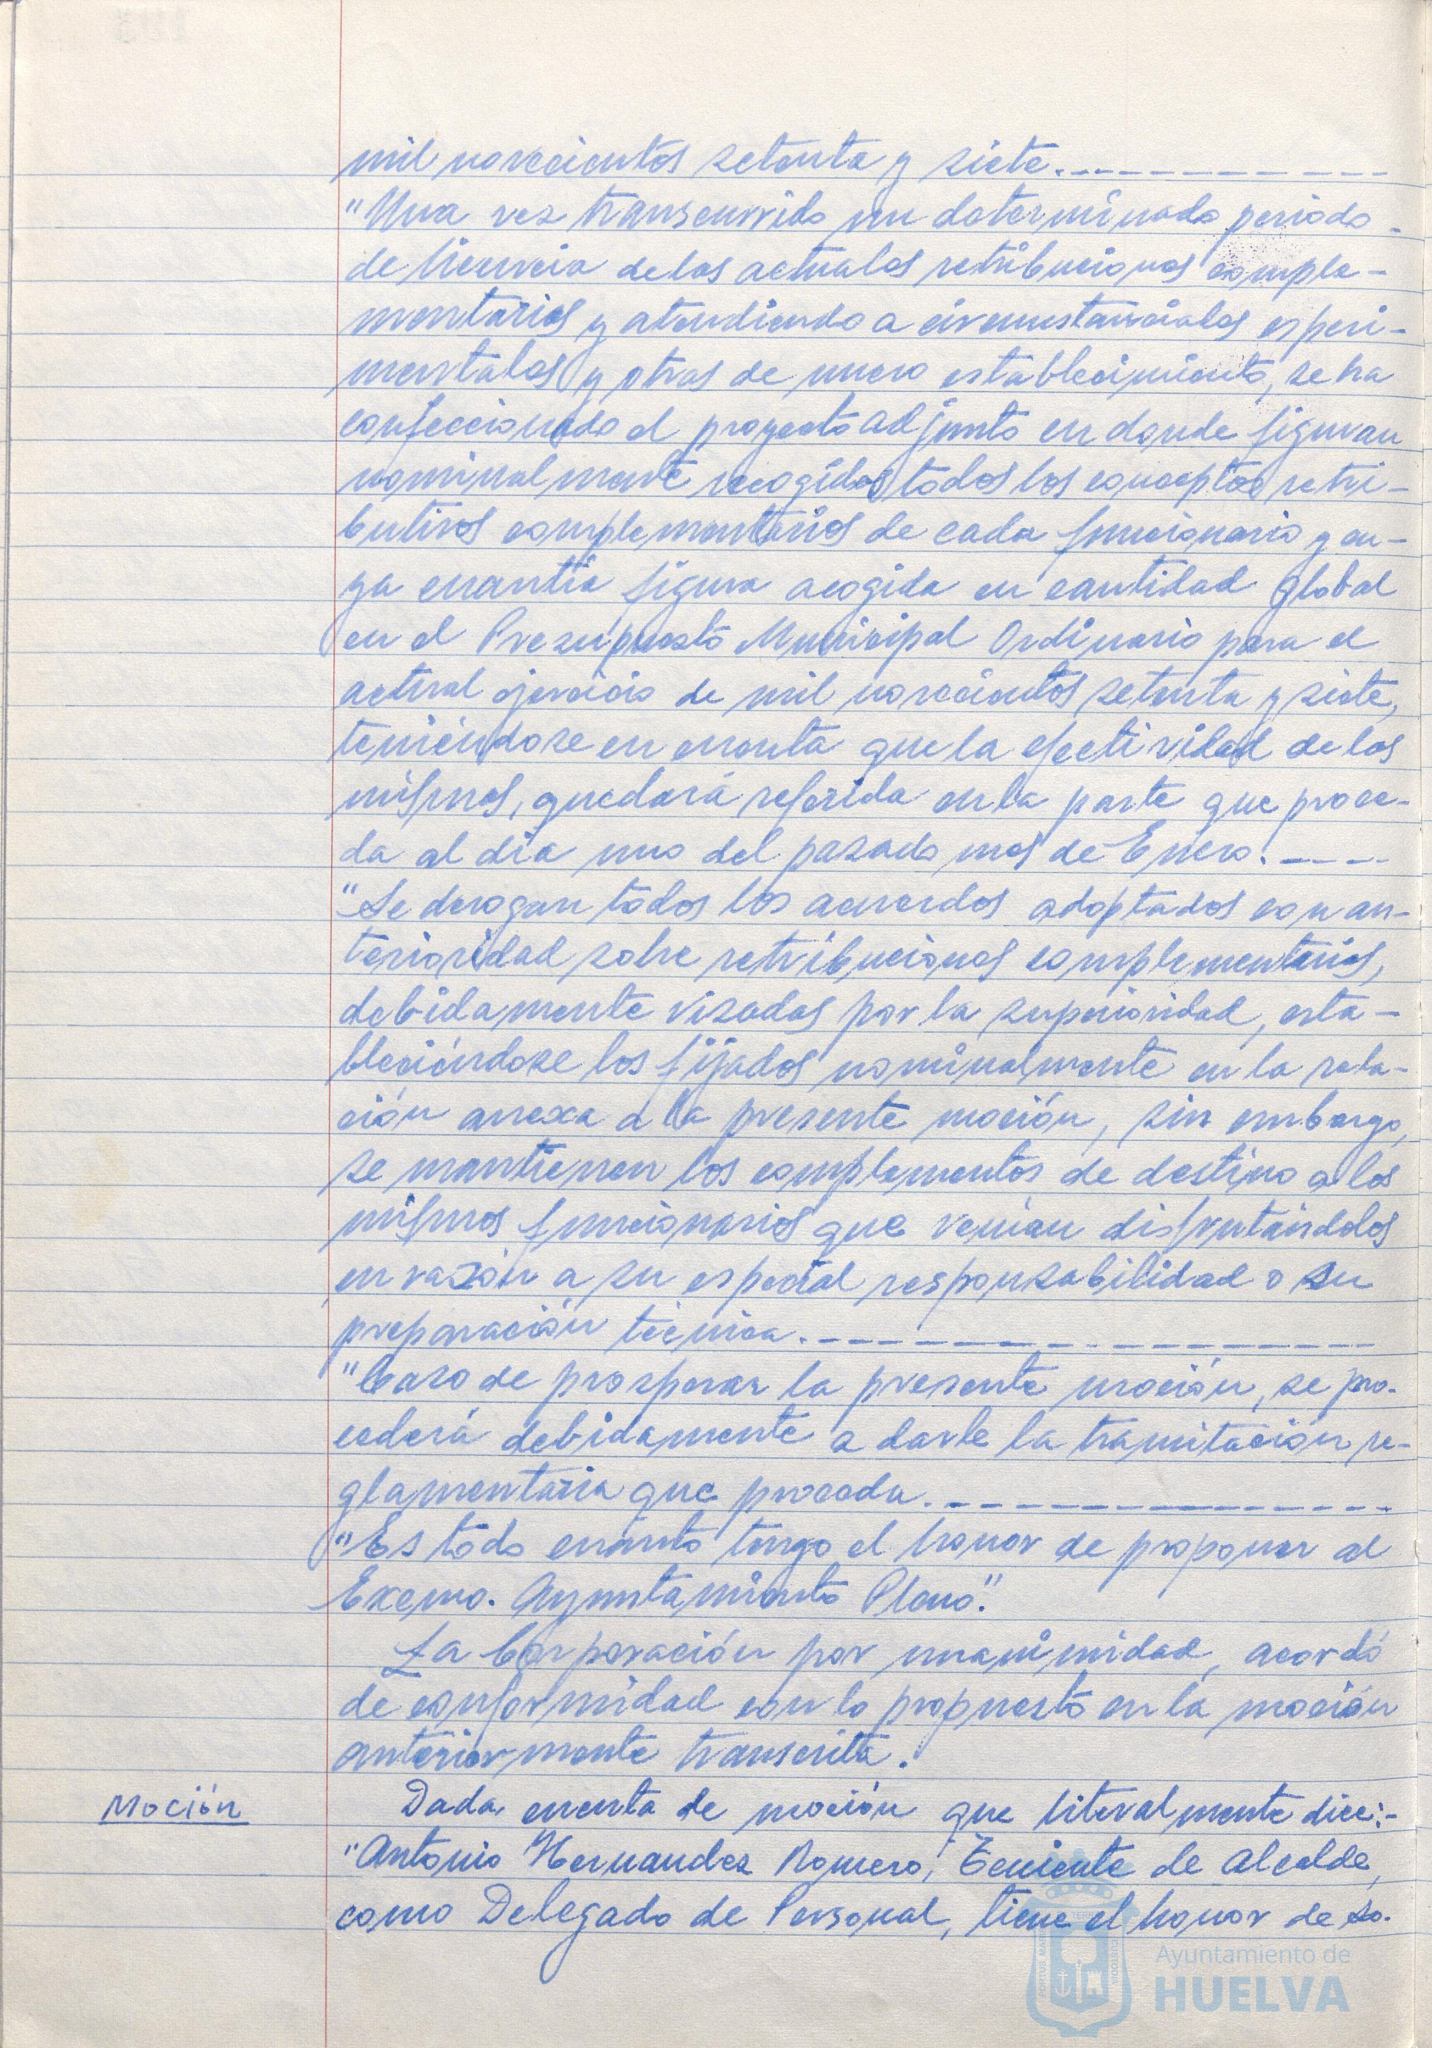 mil novecientos setenta y siete.
"Una vez transcurrido un determinado periodo
de licencia de las actuales retribuciones comple-
mentarias y atendiendo a circunstanciales esperi-
mentales y otras de nuevo establecimiento, se ha
confeccionado el proyecto adjunto en donde figuran
nominalmente recogidos todos los conceptos retri-
butivos complementarios de cada funcionario y cu-
ya cuantía figura acogida en cantidad global
en el Presupuesto Municipal Ordinario para el
actual ejercicio de mil novecientos setenta y siete,
teniéndose en cuenta que la efectividad de los
mismos, quedará referida en la parte que proce-
da al día uno del pasado mes de Enero.
"Se derogan todos los acuerdos adoptados con an-
terioridad sobre retribuciones complementarias,
debidamente visados por la superioridad, esta-
bleciéndose los fijados nominalmente en la rela-
ción anexa a la presente moción, sin embargo,
se mantienen los complementos de destino a los
mismos funcionarios que venían disfrutándolos
en razón a su especial responsabilidad o su
preparación técnica.
"Caso de prosperar la presente moción, se pro-
cederá debidamente a darle la tramitación re-
glamentaria que proceda.
"Es todo cuanto tengo el honor de proponer al
Excmo. Ayuntamiento Pleno".
La Corporación por unanimidad, acordó
de conformidad con lo propuesto en la moción
anteriormente transcrita.
Moción
Dada cuenta de moción que literalmente dice:-
"Antonio Hernandez Romero, Teniente de Alcalde,
como Delegado de Personal, tiene el honor de so-
Ayuntamiento de
HUELVA